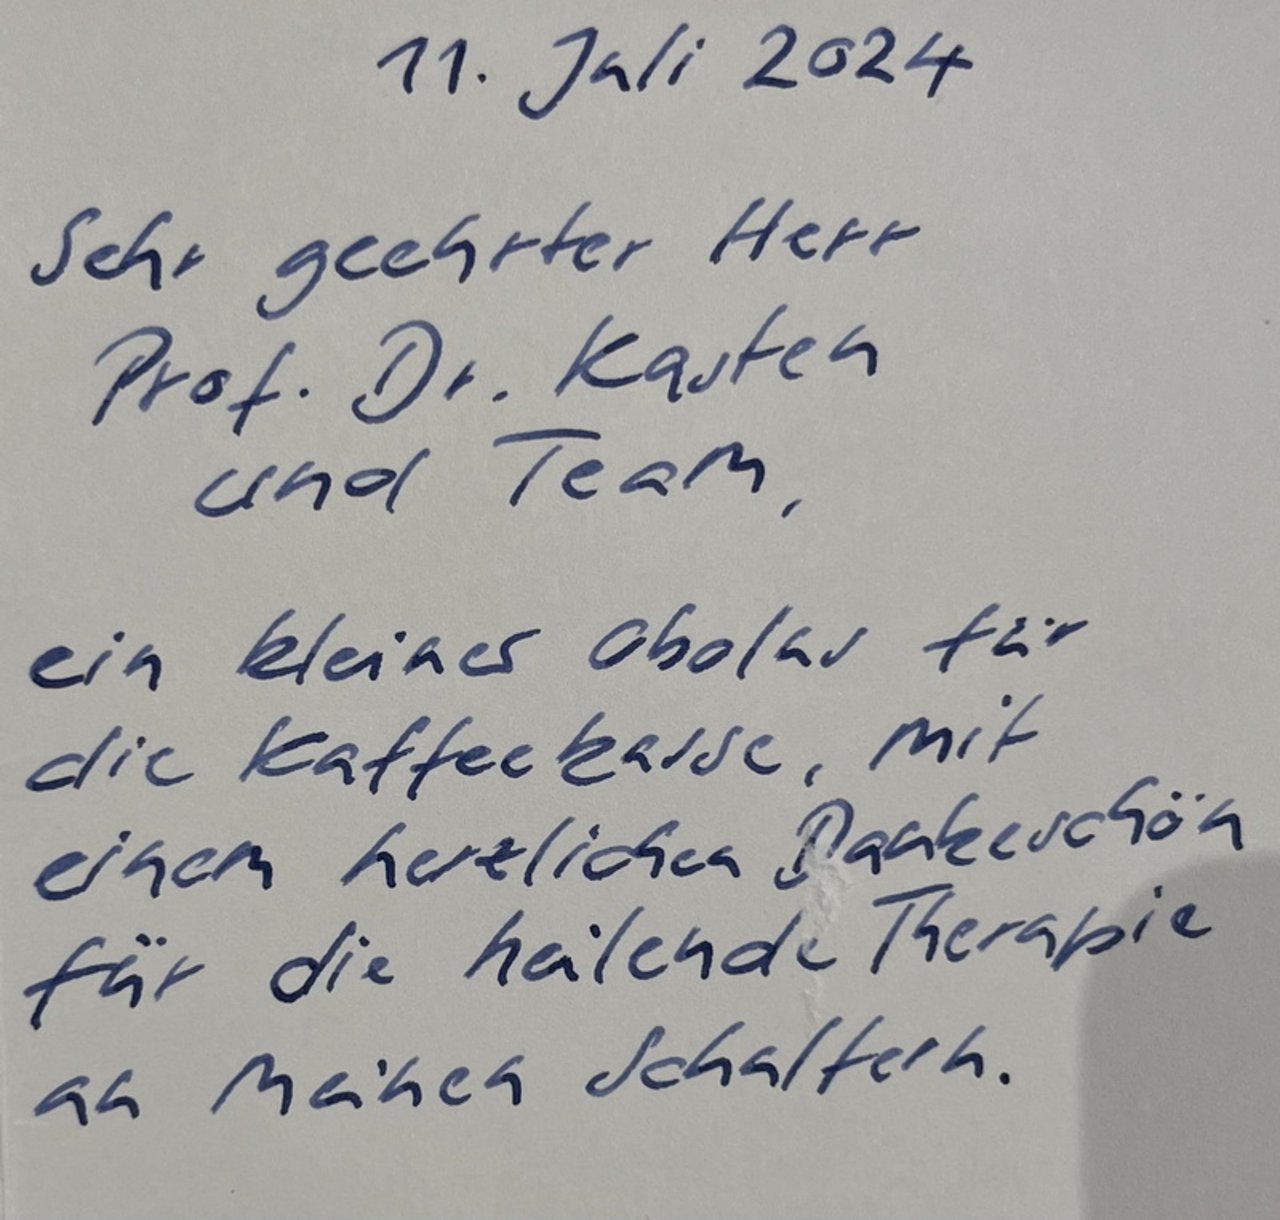 11. Juli 2024
Sehr geehrter Herr
Prof. Dr. Kasten
und Team,
ein kleines Obolus für
die Kaffeekasse, mit
einem herzlichen Dankeschön
für die heilende Therapie
an meinen Schaltern.